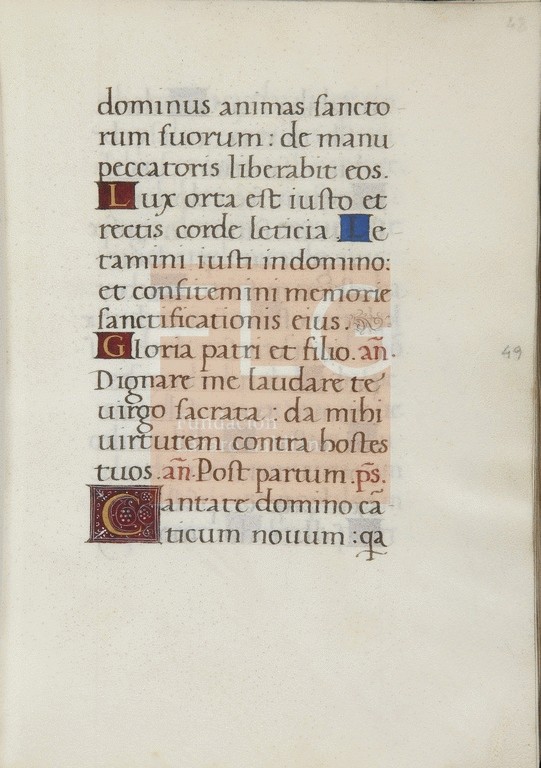 48
dominus animas sancto
rum suorum : de manu
peccatoris liberabit eos.
Lux orta est iusto et
rectis corde leticia. Le
tamini iusti in domino:
et confitemini memorie
sanctificationis eius.
Gloria patri et filio. añ.
49
Dignare me laudare te
uirgo sacrata : da mihi
uirtutem contra hostes
tuos. añ. Post partum. p̃s.
Cantate domino cã
ticum nouum : qa
FLG
Fundación